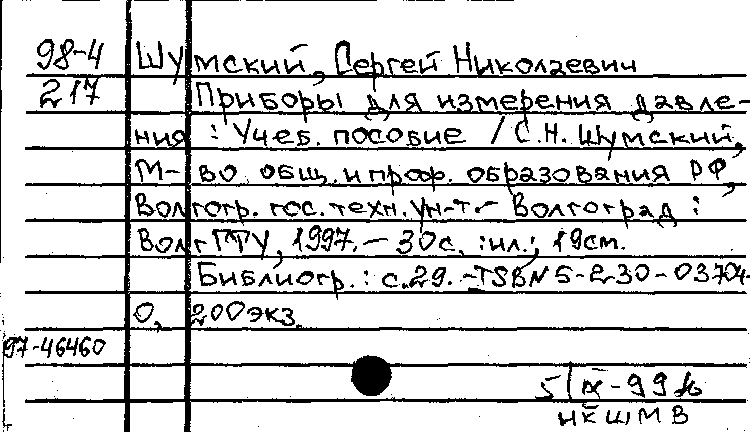 98-4 Шумский, Сергей Николаевич
217 Приборы для измерения давле-
ния : Учеб. пособие / С.Н. Шумский,
М-во общ. и проф. образования РФ,
Волгогр. гос. техн. ун-т. - Волгоград :
ВолгГТУ, 1997. - 30с. : ил.; 19см.
Библиогр.: с.29. - ISBN 5-230-03704-
0, 200экз.
97-46460
5/IX-99
НКШМВ